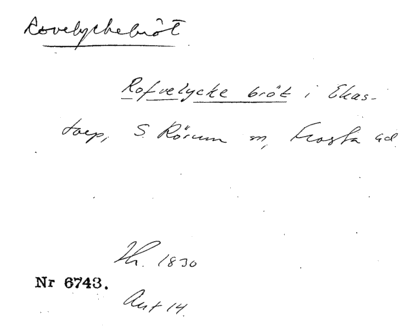 Rovelyckebröt
Rofvelycke bröt i Ekas-
torp, S. Rörum sn, Frosta hd
Th. 1830
Nr 6743.
Avt 14.